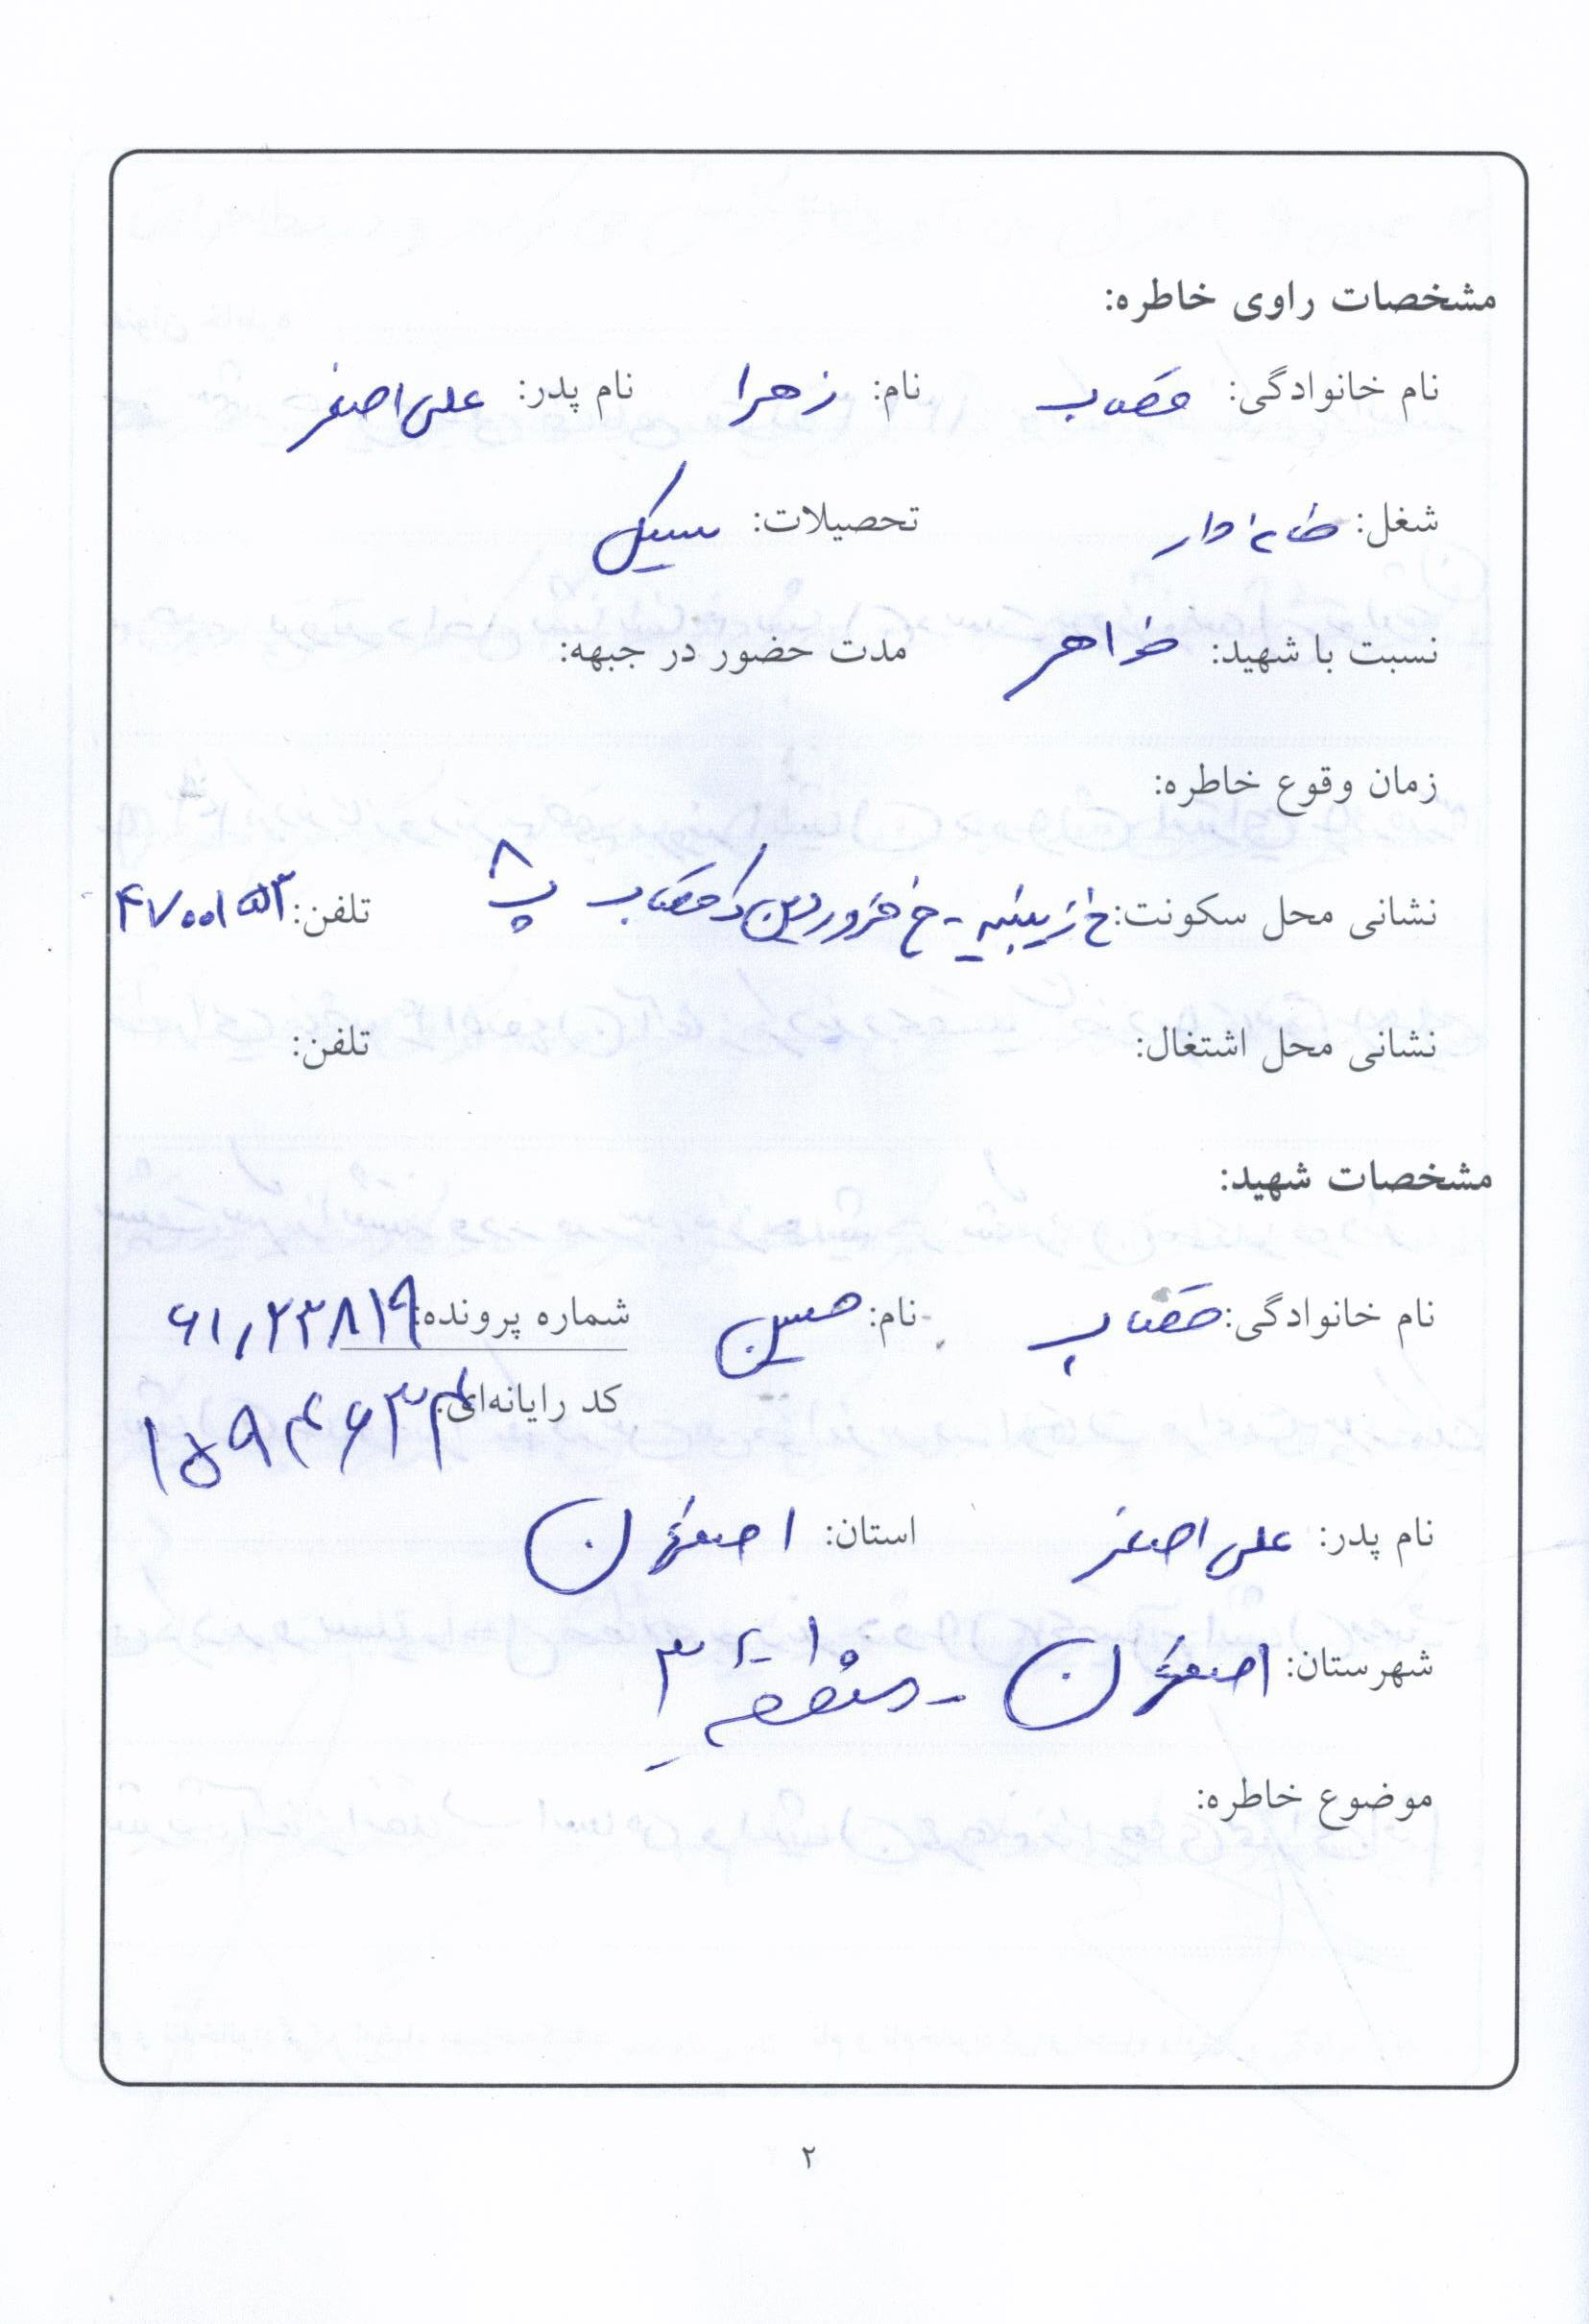 مشخصات راوی خاطره:
نام خانوادگی: قصاب نام: زهرا نام پدر: علی اصغر
شغل: خانه دار تحصیلات: سیکل
نسبت با شهید: خواهر مدت حضور در جبهه:
زمان وقوع خاطره:
نشانی محل سکونت: خ زینبیه - خ فروردین ک قصاب پ ۸ تلفن: ۴۷۰۰۱۵۳
نشانی محل اشتغال: تلفن:
مشخصات شهید:
نام خانوادگی: قصاب نام: حسین شماره پرونده: ۶۱,۲۳۸۱۹
کد رایانه‌ای: ۱۵۹۴۶۳۴
نام پدر: علی اصغر استان: اصفهان
شهرستان: اصفهان - منطقه ۳
موضوع خاطره:
۲